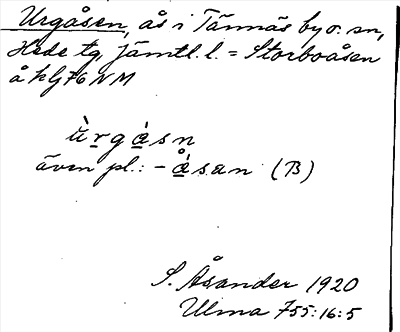 Urgåsen, ås i Tännäs by o. sn,
Hede tg Jämtl. l. = Storboåsen
å k bl 76 N M
ùrgåsn
även pl.: -åsan (B)
S. Åsander 1920
Ulma 755:16:5